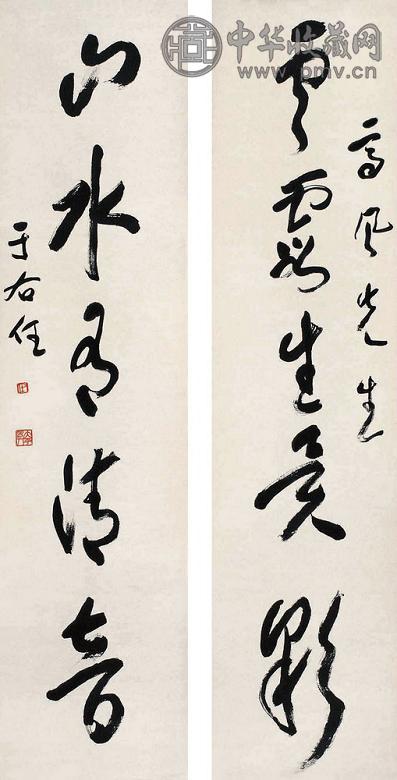 中华收藏网
www.pmv.cn
高風先生
雲霞生異彩
山水有清音
于右任